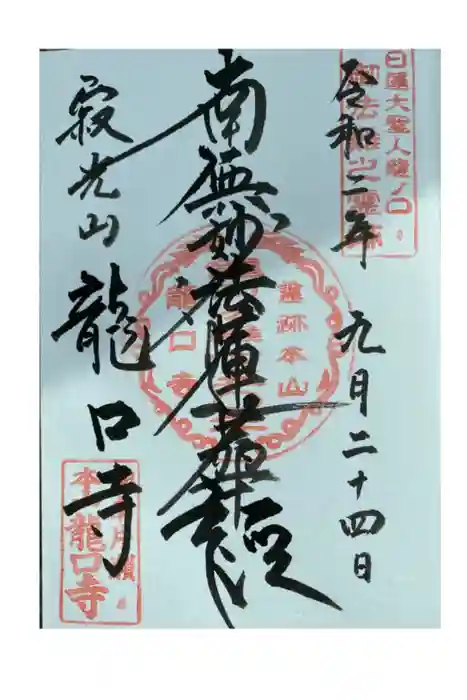 日蓮大聖人龍ノ口
御法難之霊跡
令和二年
九月二十四日
南無妙法蓮華経
霊跡本山
龍口寺
寂光山
龍口寺
本山龍口寺